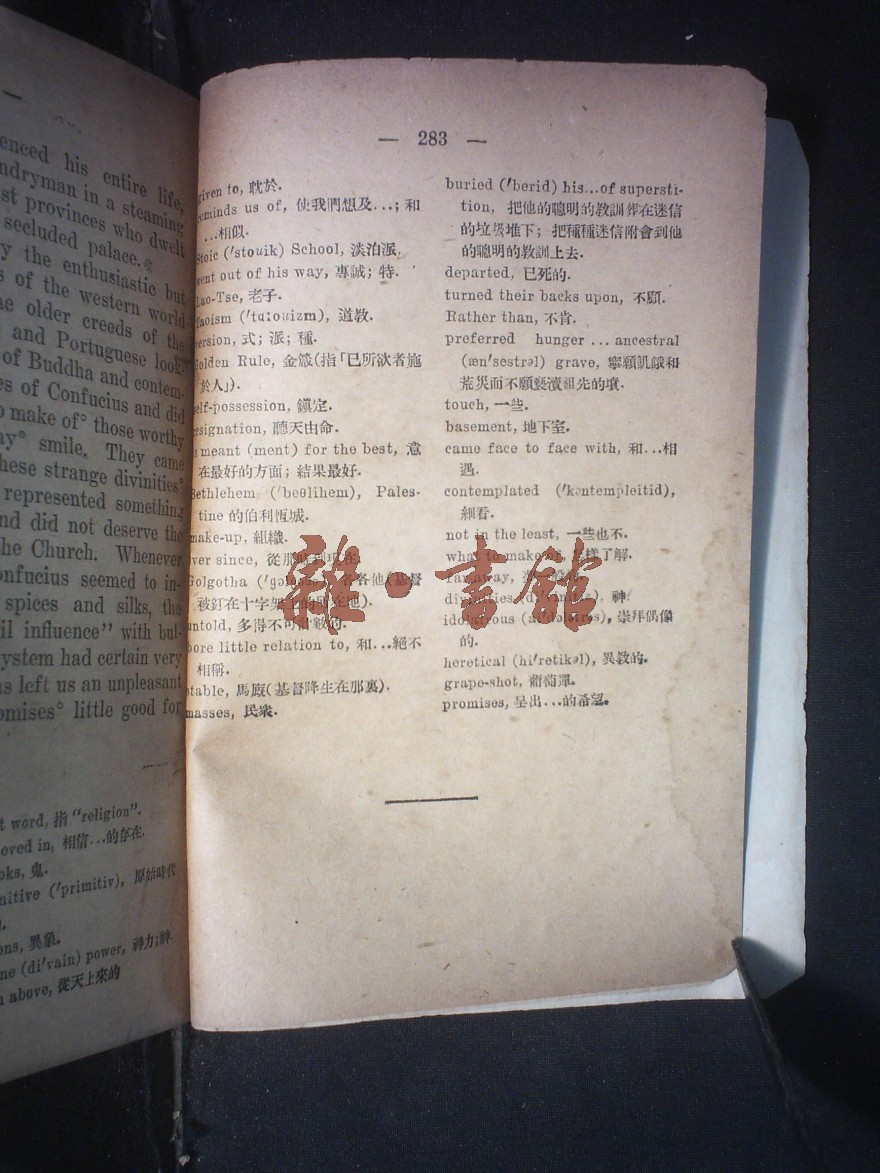 enced his entire life,
ndryman in a steaming
st provinces who dwelt
secluded palace.
y the enthusiastic but
s of the western world
e older creeds of the
and Portuguese look
of Buddha and contem-
es of Confucius and did
o make of° those worthy
ay° smile. They came
hese strange divinities°
represented something
nd did not deserve the
he Church. Whenever
onfucius seemed to in-
spices and silks, the
il influence” with bul-
ystem had certain very
us left us an unpleasant
omises° little good for
t word, 指 “religion”.
eved in, 相信...的存在.
oks, 鬼.
nitive ('primitiv), 原始時代
ons, 異象.
ne (di'vain) power, 神力;神
n above, 從天上來的
— 283 —
given to, 耽於.
reminds us of, 使我們想及...; 和
...相似.
Stoic ('stouik) School, 淡泊派.
went out of his way, 專誠; 特.
Lao-Tse, 老子.
Taoism ('ta:ouizm), 道教.
version, 式; 派; 種.
Golden Rule, 金箴(指「己所欲者施
於人」).
self-possession, 鎮定.
resignation, 聽天由命.
is meant (ment) for the best, 意
在最好的方面; 結果最好.
Bethlehem ('beθlihem), Pales-
tine 的伯利恆城.
make-up, 組織.
ever since, 從那時到現在.
Golgotha 各各他(基督
被釘在十字架上的所在地).
untold, 多得不可計數的.
bore little relation to, 和...絕不
相稱.
stable, 馬厩(基督降生在那裏).
masses, 民衆.
buried ('berid) his...of supersti-
tion, 把他的聰明的教訓葬在迷信
的垃圾堆下; 把種種迷信附會到他
的聰明的教訓上去.
departed, 已死的.
turned their backs upon, 不顧.
Rather than, 不肯.
preferred hunger ... ancestral
(æn'sestrəl) grave, 寧願飢餓和
荒災而不願褻瀆祖先的墳.
touch, 一些.
basement, 地下室.
came face to face with, 和...相
遇.
contemplated ('kɔntempleitid),
細看.
not in the least, 一些也不.
what to make of, 樣了解.
faraway,
divinities 神.
idolatrous (ai'dɔlətrəs), 崇拜偶像
的.
heretical (hi'retikəl), 異教的.
grape-shot, 葡萄彈.
promises, 呈出...的希望.
雜·書館